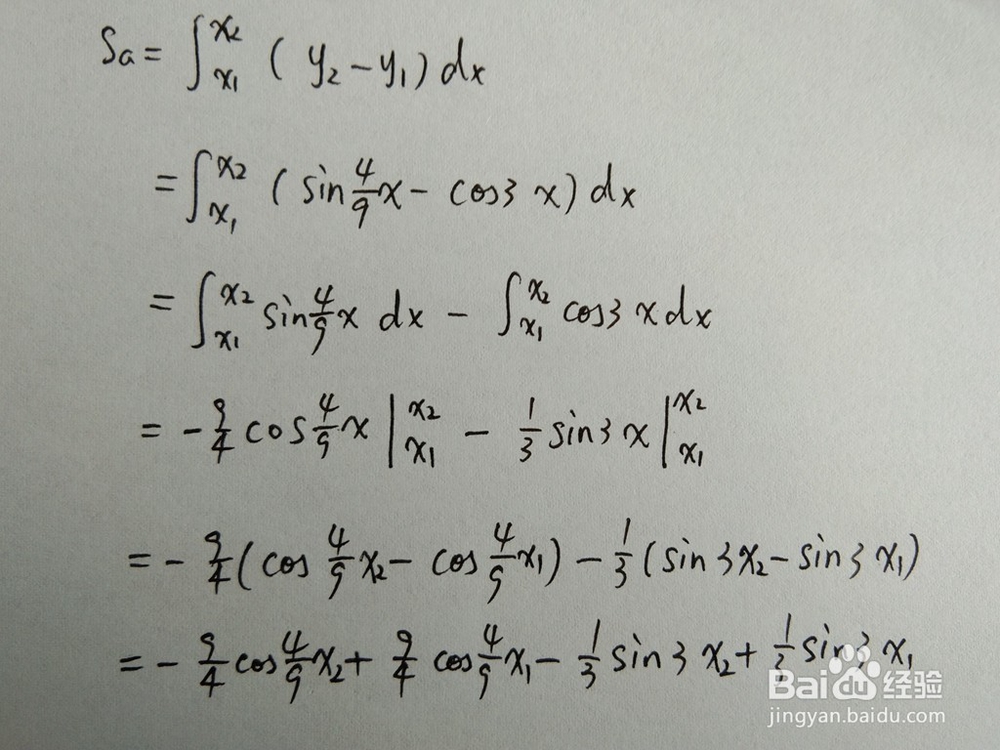 Sa = ∫_{x₁}^{x₂} ( y₂ - y₁ ) dx
= ∫_{x₁}^{x₂} ( sin 4/9 x - cos3 x ) dx
= ∫_{x₁}^{x₂} sin 4/9 x dx - ∫_{x₁}^{x₂} cos3 x dx
= - 9/4 cos 4/9 x |_{x₁}^{x₂} - 1/3 sin3 x |_{x₁}^{x₂}
= - 9/4 ( cos 4/9 x₂ - cos 4/9 x₁ ) - 1/3 ( sin 3x₂ - sin 3 x₁ )
= - 9/4 cos 4/9 x₂ + 9/4 cos 4/9 x₁ - 1/3 sin 3 x₂ + 1/3 sin 3 x₁
Baidu 经验
jingyan.baidu.com